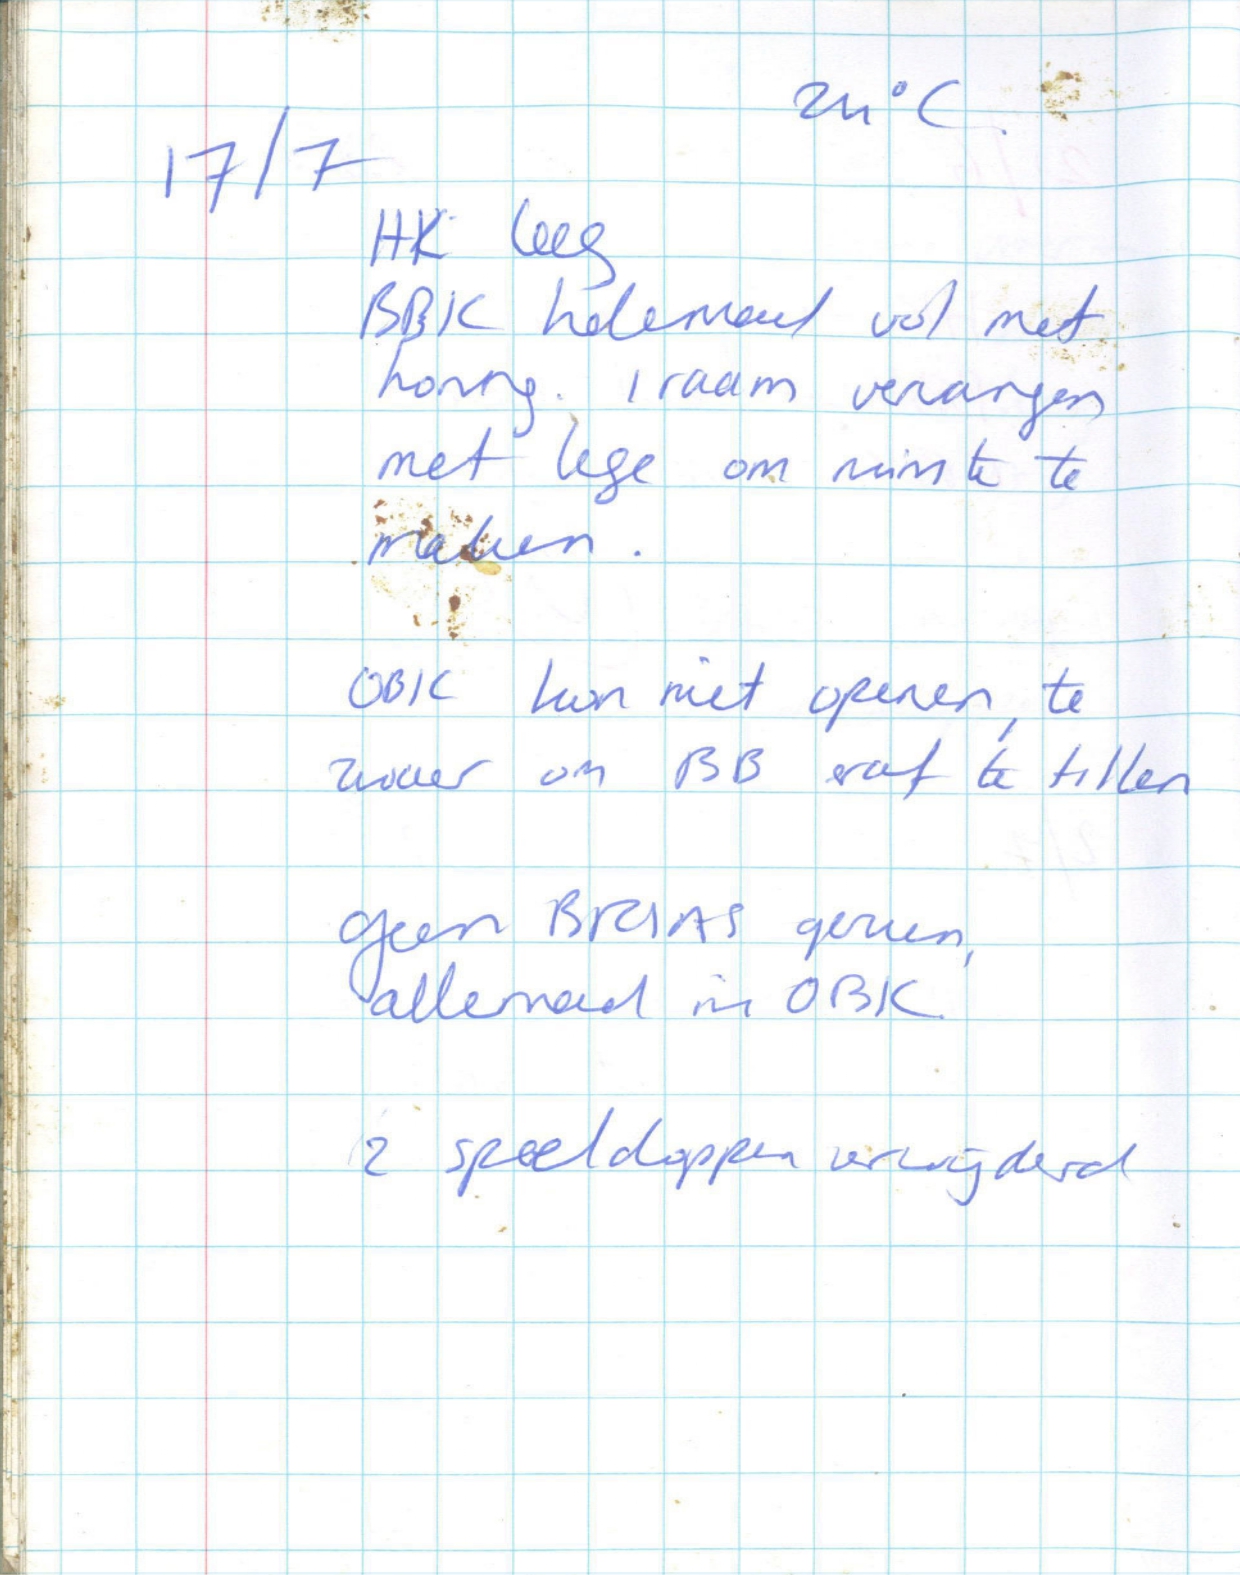 24°C.
17/7
HK leeg
BBK helemaal vol met
honing. 1 raam vervangen
met lege om ruimte te
maken.
OBK kon niet openen, te
zwaar om BB eraf te tillen
geen BRIAS gezien,
allemaal in OBK.
2 speeldoppen verwijderd